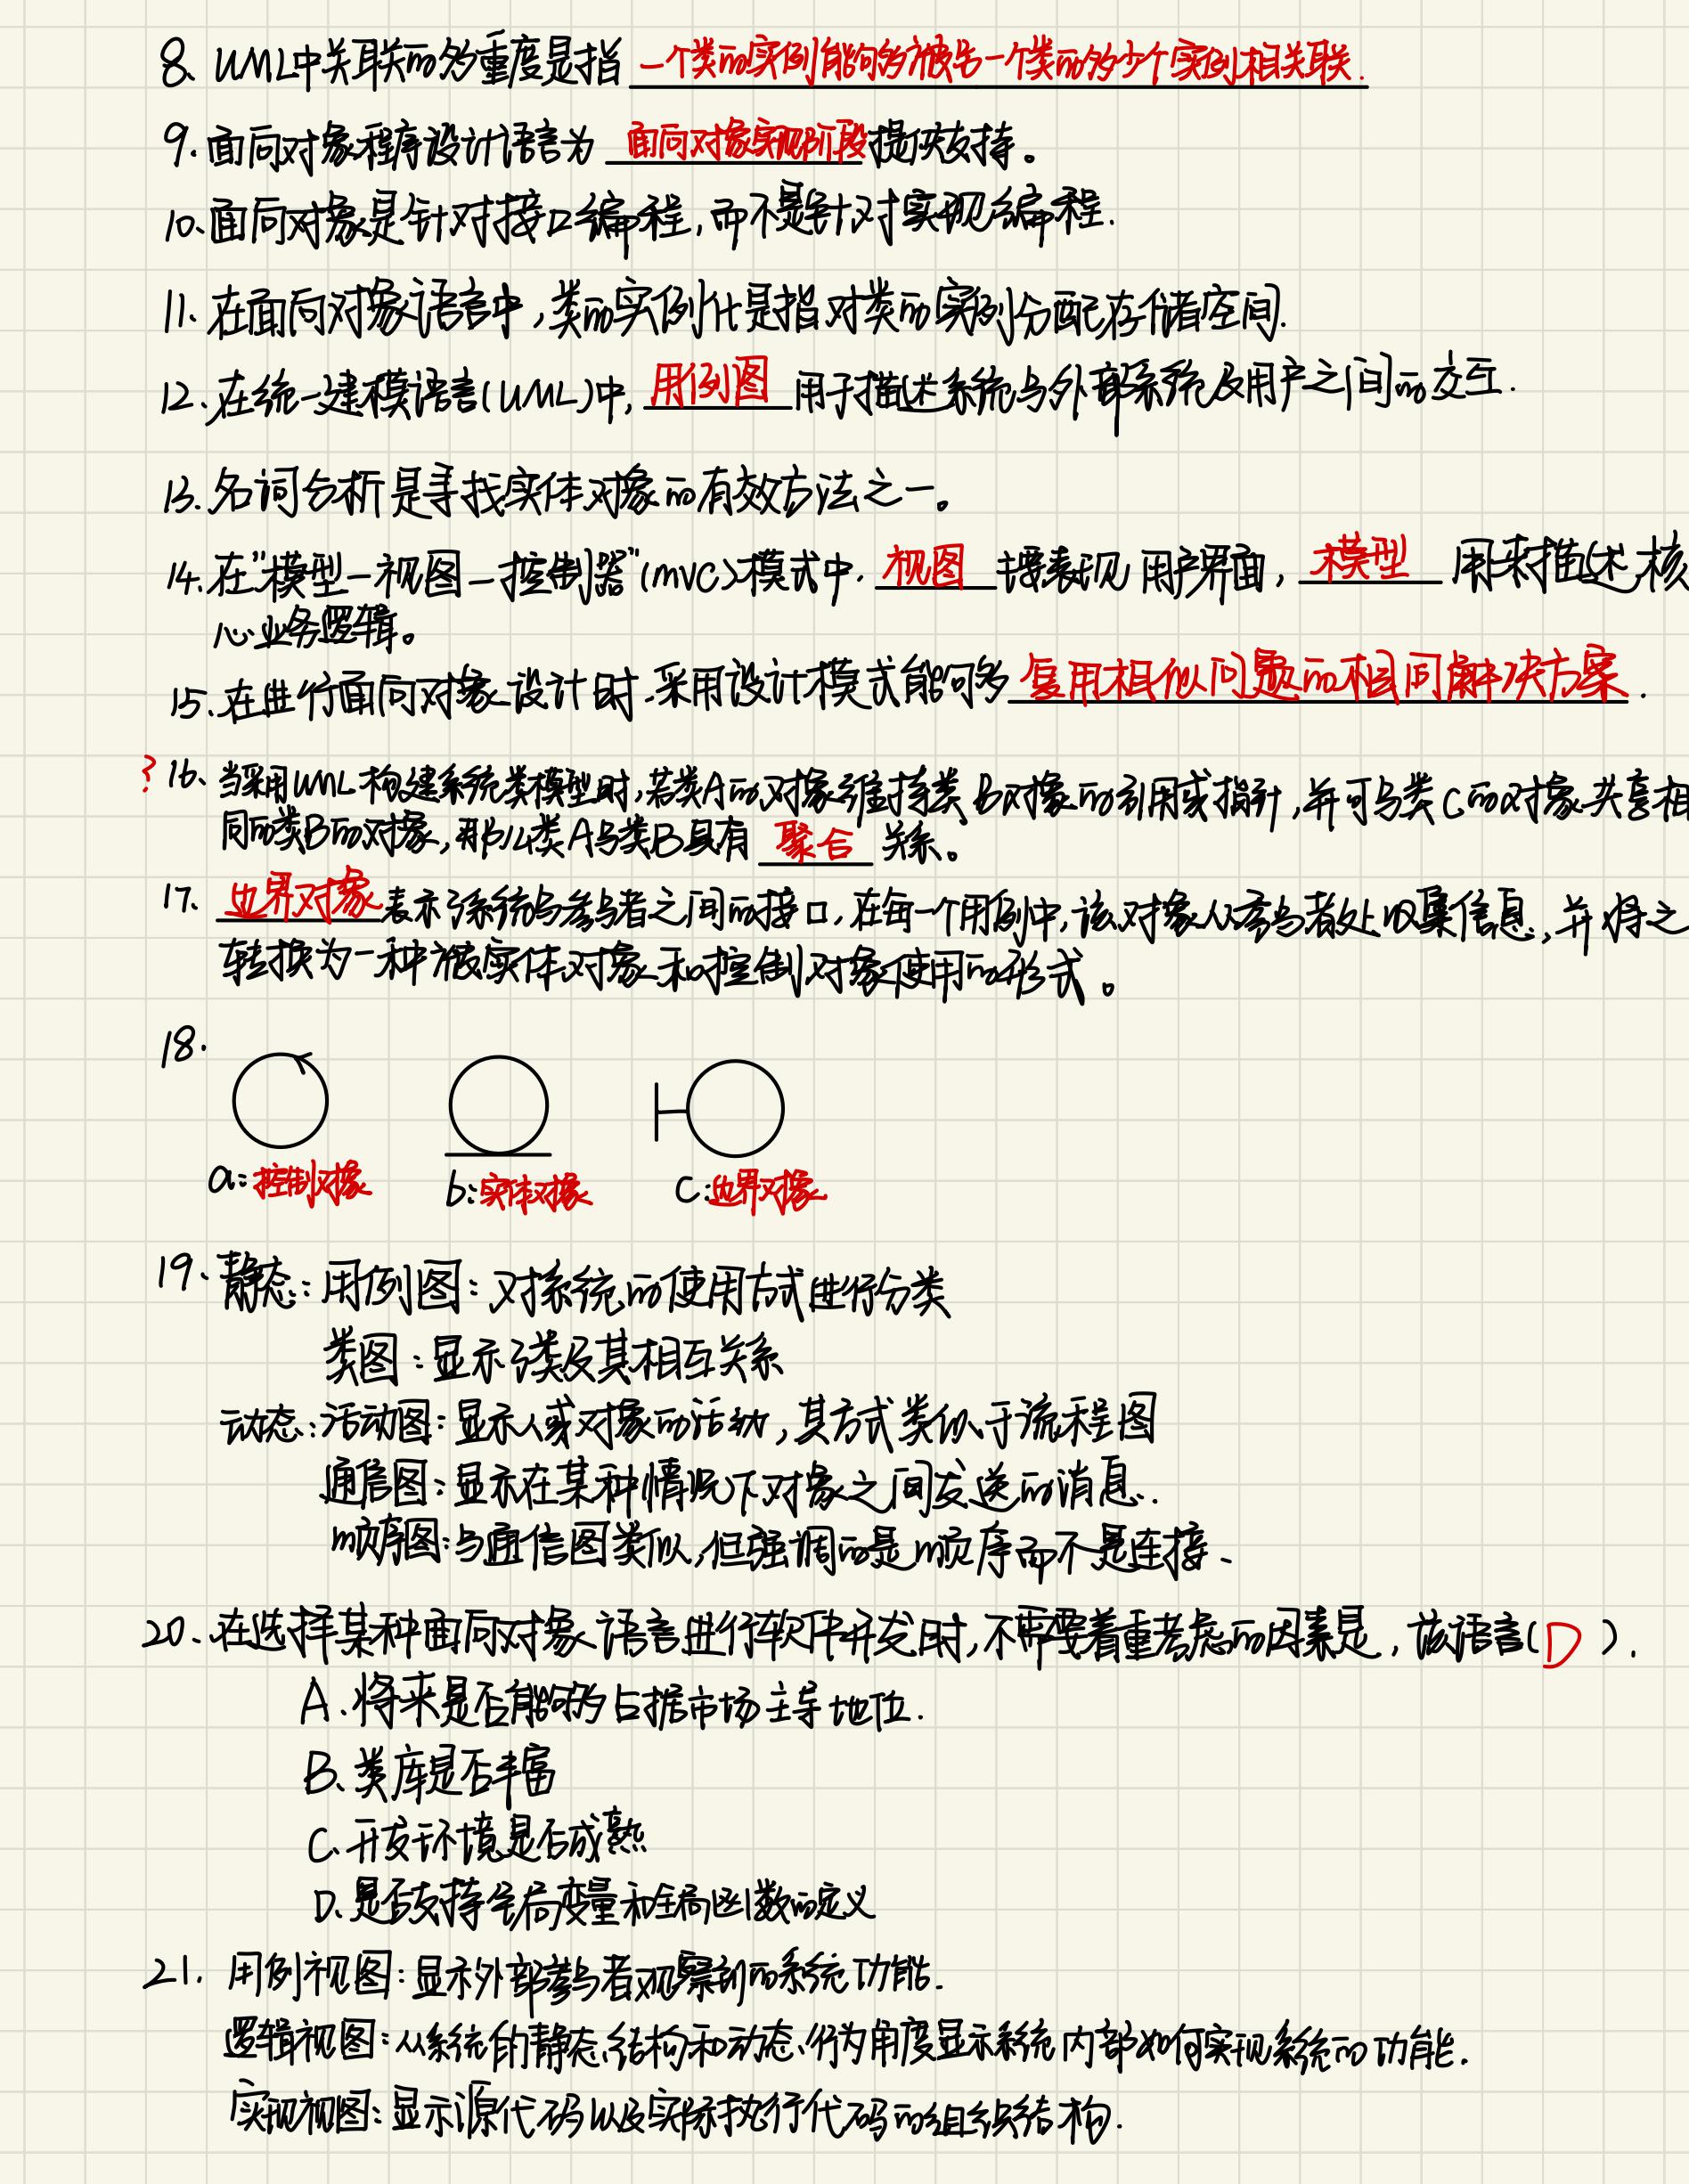 8. UML中关联的多重度是指 一个类的实例能够被另一个类的多少个实例相关联.
9. 面向对象程序设计语言为 面向对象实现阶段 提供支持。
10. 面向对象是针对接口编程,而不是针对实现编程.
11. 在面向对象语言中,类的实例化是指对类的实例分配存储空间.
12. 在统一建模语言(UML)中, 用例图 用于描述系统与外部系统及用户之间的交互.
13. 名词分析是寻找实体对象的有效方法之一。
14. 在"模型—视图—控制器"(MVC)模式中. 视图 主要表现用户界面, 模型 用来描述核
心业务逻辑。
15. 在进行面向对象设计时.采用设计模式能够 复用相似问题的相同解决方案.
? 16、当采用UML构建系统类模型时,若类A的对象维持类B对象的引用或指针,并可与类C的对象共享相
同的类B的对象,那么类A与类B具有 聚合 关系。
17、 边界对象 表示了系统与参与者之间的接口,在每一个用例中,该对象从参与者处收集信息,并将之
转换为一种被实体对象和控制对象使用的形式。
18.
a:控制对象 b:实体对象 c:边界对象
19、静态:用例图:对系统的使用方式进行分类
类图:显示了类及其相互关系
动态:活动图:显示人或对象的活动,其方式类似于流程图
通信图:显示在某种情况下对象之间发送的消息.
顺序图:与通信图类似,但强调的是顺序而不是连接、
20、在选择某种面向对象语言进行软件开发时,不需要着重考虑的因素是,该语言( D ).
A.将来是否能够占据市场主导地位.
B、类库是否丰富
C.开发环境是否成熟
D、是否支持全局变量和全局函数的定义
21. 用例视图:显示外部参与者观察到的系统功能.
逻辑视图:从系统的静态结构和动态行为角度显示系统内部如何实现系统的功能.
实现视图:显示源代码以及实际执行代码的组织结构.